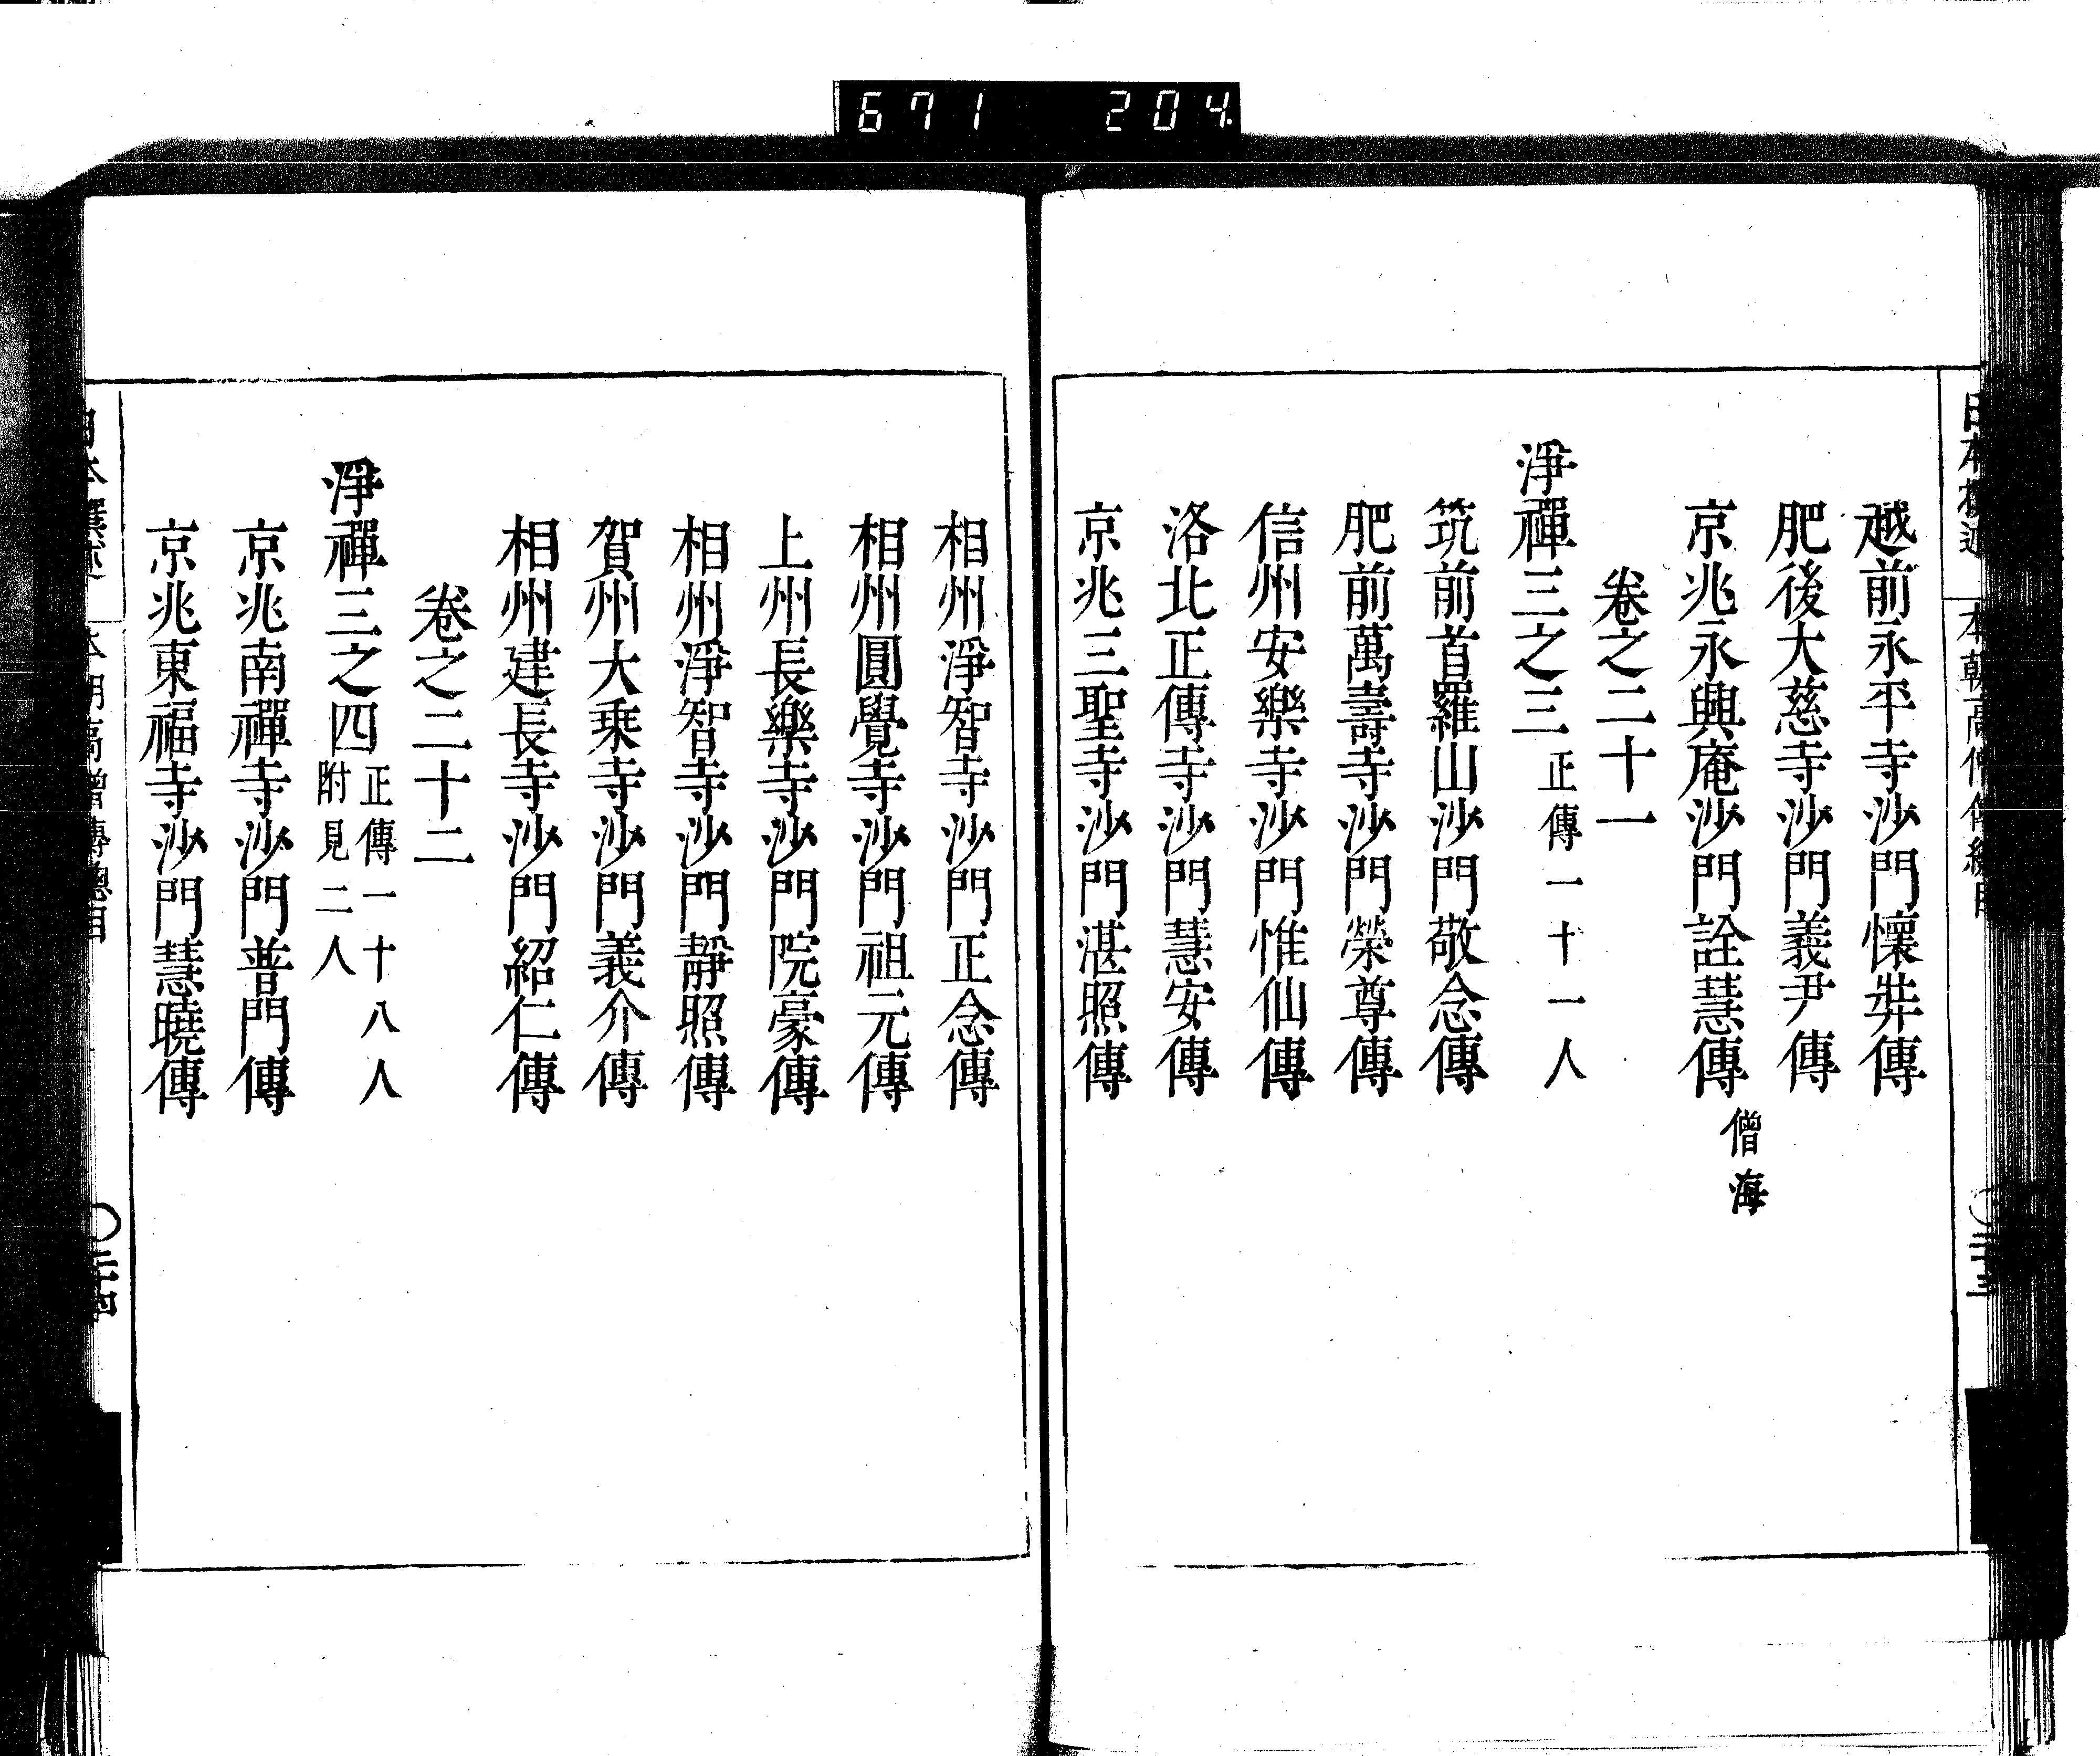 671 204
越前永平寺沙門懷弉傳
肥後大慈寺沙門義尹傳
京兆永興庵沙門詮慧傳 僧海
卷之二十一
淨禪三之三 正傳一十一人
筑前首羅山沙門敬念傳
肥前萬壽寺沙門榮尊傳
信州安樂寺沙門惟仙傳
洛北正傳寺沙門慧安傳
京兆三聖寺沙門湛照傳
相州淨智寺沙門正念傳
相州圓覺寺沙門祖元傳
上州長樂寺沙門院豪傳
相州淨智寺沙門靜照傳
賀州大乘寺沙門義介傳
相州建長寺沙門紹仁傳
卷之二十二
淨禪三之四 正傳一十八人
附見二人
京兆南禪寺沙門普門傳
京兆東福寺沙門慧曉傳